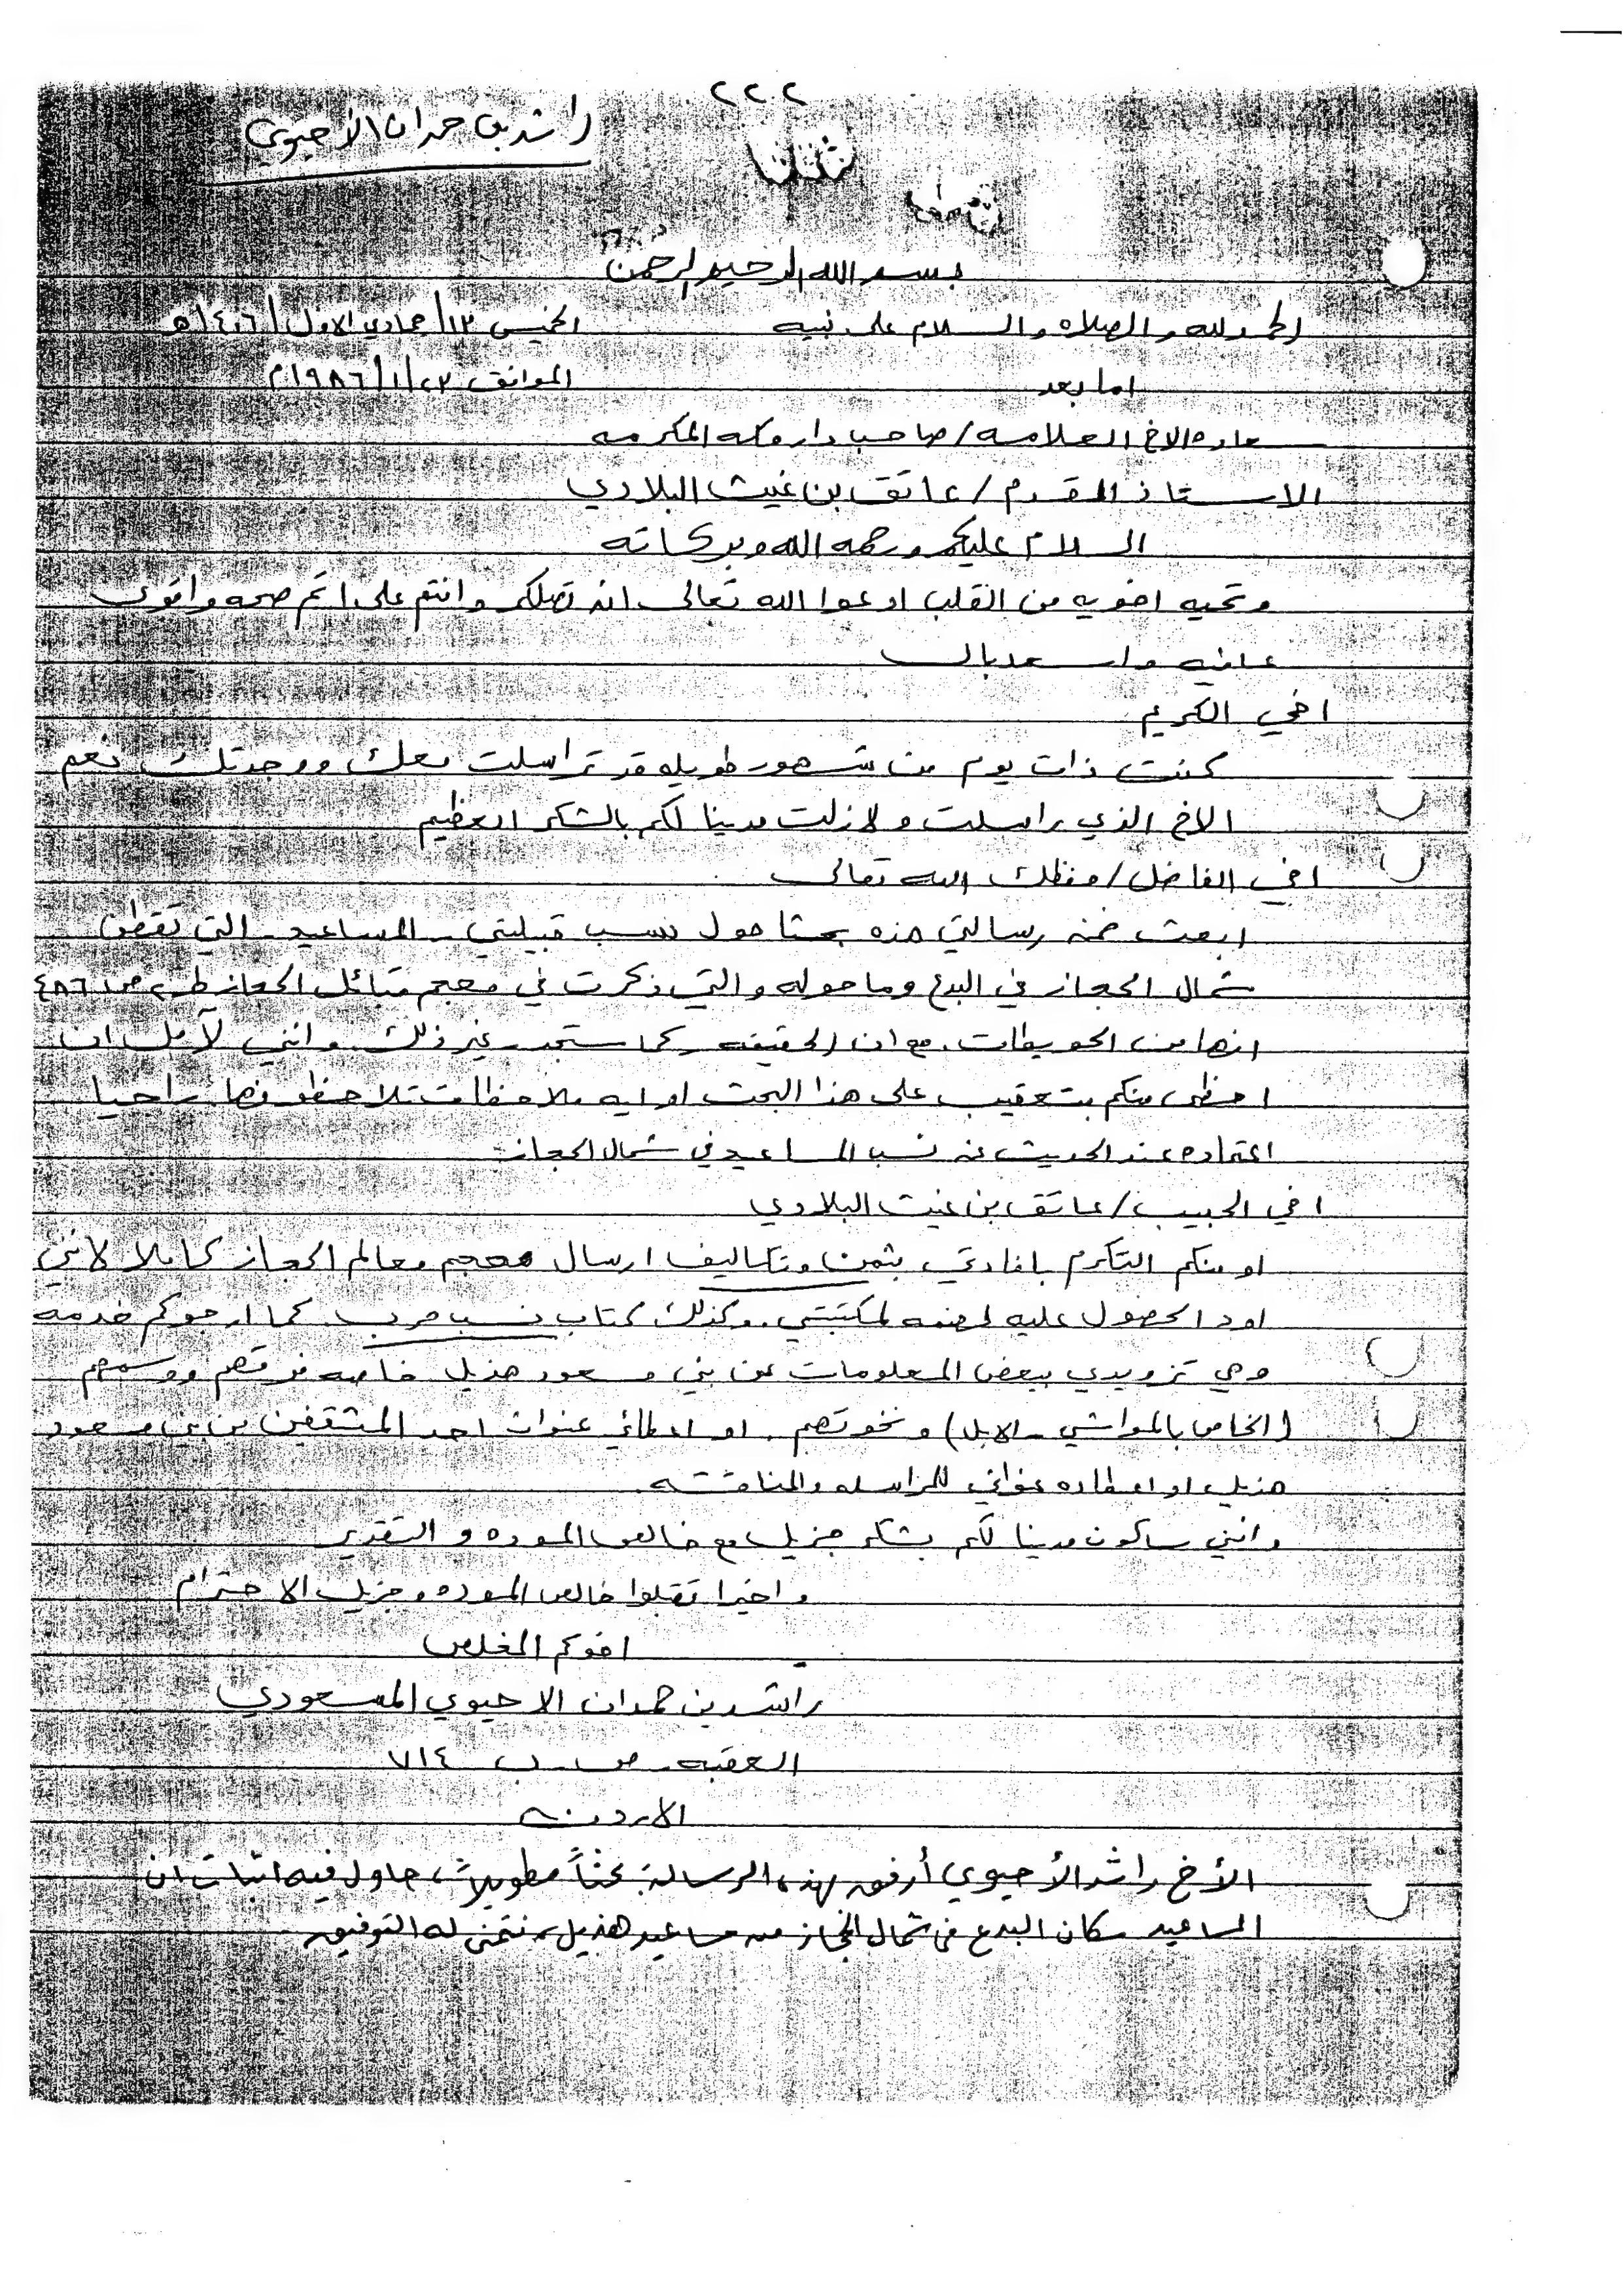 ٢٢٢
راشد بن حمدان الأحيوي
بسم الله الرحيم الرحمن
الحمد لله والصلاه والسلام على نبيه
الخميس ١٣/جمادي الاول/١٤٠٦هـ
اما بعد
الموافق ٢٣/١/١٩٨٦م
سعاده الاخ العلامه/صاحب دار مكه المكرمه
الاستاذ المقدم/عاتق بن غيث البلادي
السلام عليكم ورحمه الله وبركاته
وتحيه اخويه من القلب ادعوا الله تعالى ان تصلكم وانتم على اتم صحه واقوى
عافيه واسعد بال
اخي الكريم
كنت ذات يوم من شهور طويله قد تراسلت معك ووجدتك نعم
الاخ الذي راسلت ولازلت مدينا لكم بالشكر العظيم
اخي الفاضل/حفظك الله تعالى
ابعث ضمن رسالتي هذه بحثا حول نسب قبيلتي - المساعيد - التي تقطن
شمال الحجاز في البدع وما حوله والتي ذكرت في معجم قبائل الحجاز ط٢ ص٤٨٦
انها من الحويطات. مع ان الحقيقه كما ستجد غير ذلك. وانني لآمل ان
احظى منكم بتعقيب على هذا البحث او ايه ملاحظات تلاحظونها راجيا
اعتماده عند الحديث عن نسب المساعيد في شمال الحجاز
اخي الحبيب/عاتق بن غيث البلادي
او منكم التكرم بافادتي بثمن وتكاليف ارسال معجم معالم الحجاز كاملا لانني
اود الحصول عليه لضمه لمكتبتي. وكذلك كتاب نسب حرب. كما ارجوكم خدمه
وهي تزويدي ببعض المعلومات عن بني مسعود هذيل خاصه فرقهم ووسمهم
(الخاص بالمواشي - الابل) ونخوتهم. او اعطائي عنوان احد المثقفين من بني مسعود
هذيل او اعطاءه عنواني للمراسله والمناقشه.
وانني ساكون مدينا لكم بشكر جزيل مع خالص الموده والتقدير
واخيرا تقبلوا خالص الموده وجزيل الاحترام
اخوكم المخلص
راشد بن حمدان الاحيوي المسعودي
العقبه - ص.ب ٧١٤
الاردن
الأخ راشد الأحيوي أرفق بهذه الرسالة بحثاً مطولاً، حاول فيه اثبات ان
المساعيد سكان البدع في شمال الحجاز من مساعيد هذيل، نتمنى له التوفيق